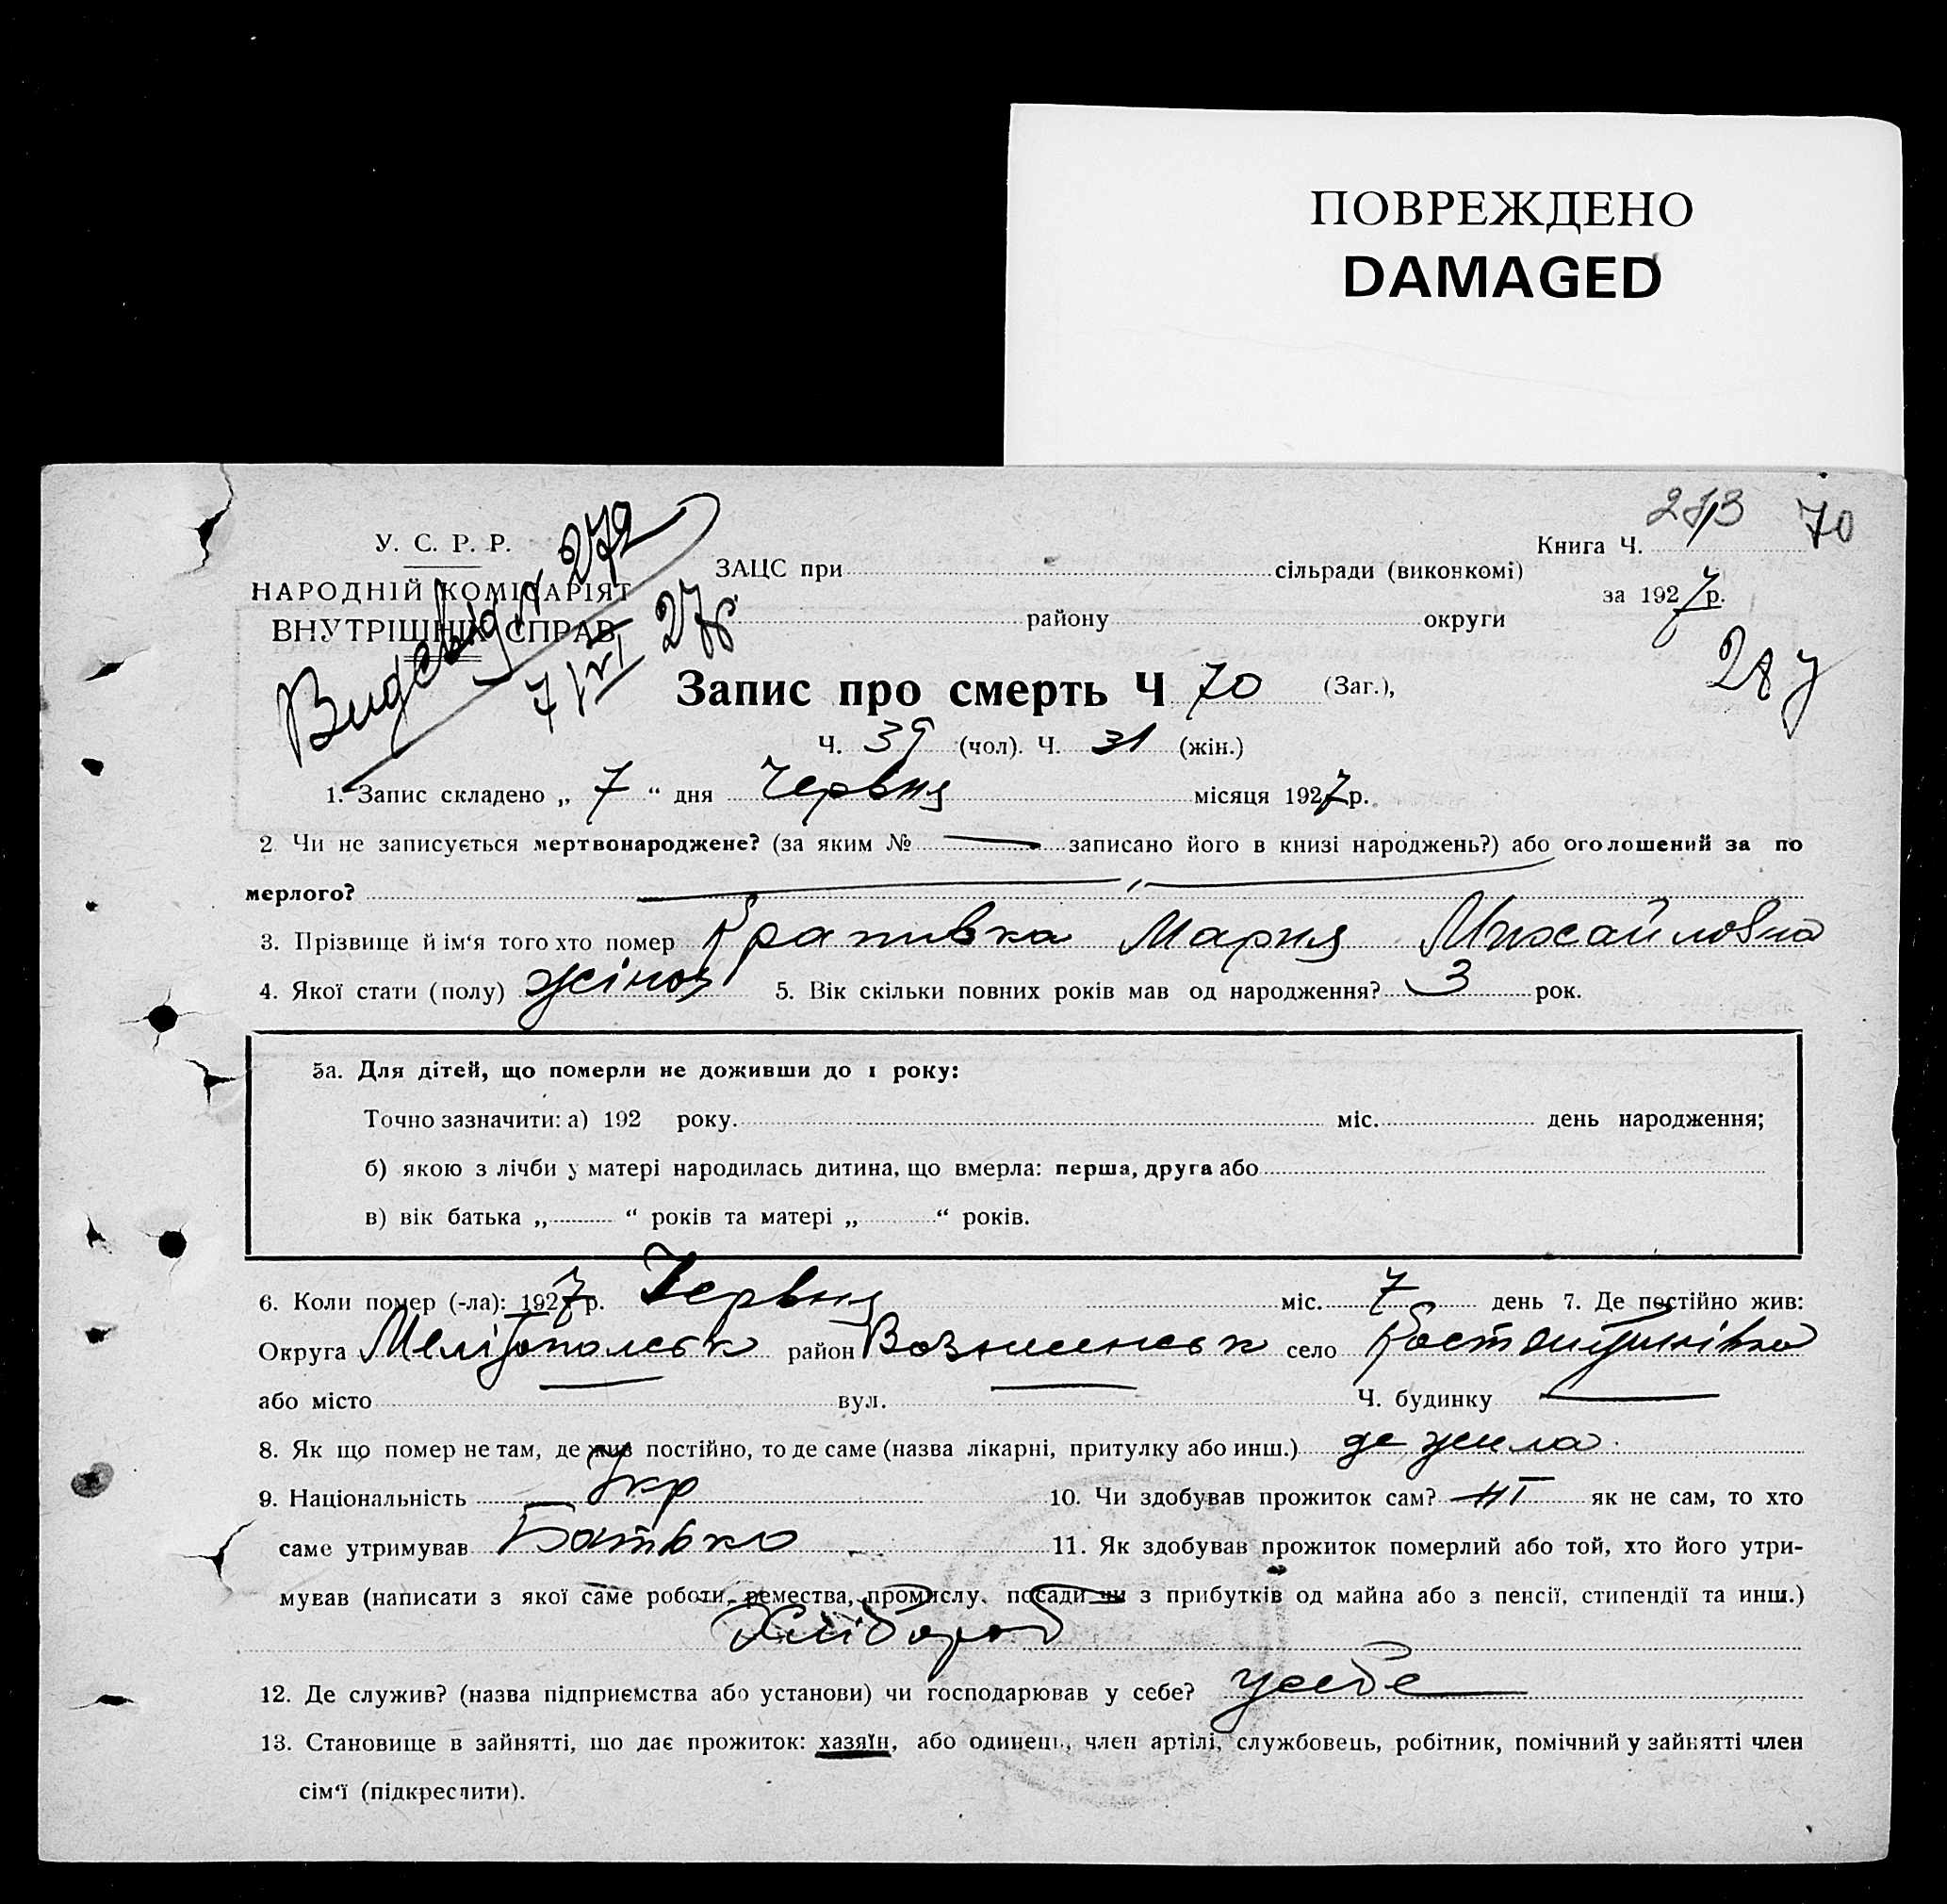 ПОВРЕЖДЕНО
DAMAGED
70
У. С. Р. Р.
Книга Ч.
НАРОДНІЙ КОМІСАРІЯТ
ЗАЦС при сільради (виконкомі)
за 1927 р.
ВНУТРІШНІХ СПРАВ
району округи
272
7/VI 27р.
Запис про смерть Ч 70 (Заг.),
Ч. 39 (чол). Ч. 31 (жін.)
1. Запис складено „ 7 “ дня Червня місяця 1927 р.
2 Чи не записується мертвонароджене? (за яким № — записано його в книзі народжень?) або оголошений за по
мерлого?
3. Прізвище й ім‘я того хто помер Крапивка Мария Михайловна
4. Якої стати (полу) жіноч 5. Вік скільки повних років мав од народження? 3 рок.
5а. Для дітей, що померли не доживши до 1 року:
Точно зазначити: а) 192 року. міс. день народження;
б) якою з лічби у матері народилась дитина, що вмерла: перша, друга або
в) вік батька „ “ років та матері „ “ років.
6. Коли помер (-ла): 1927 р. Червня міс. 7 день 7. Де постійно жив:
Округа Мелітопольськ район Вознесенськ село
або місто — вул. — Ч. будинку —
8. Як що помер не там, де жив постійно, то де саме (назва лікарні, притулку або инш.) де жила
9. Національність Укр 10. Чи здобував прожиток сам? ні як не сам, то хто
саме утримував Батько 11. Як здобував прожиток померлий або той, хто його утри-
мував (написати з якої саме роботи, ремества, промислу, посади чи з прибутків од майна або з пенсії, стипендії та инш.)
Хлібороб
12. Де служив? (назва підприємства або установи) чи господарював у себе? у себе
13. Становище в зайнятті, що дає прожиток: хазяїн, або одинець, член артілі, службовець, робітник, помічний у зайнятті член
сім‘ї (підкреслити).